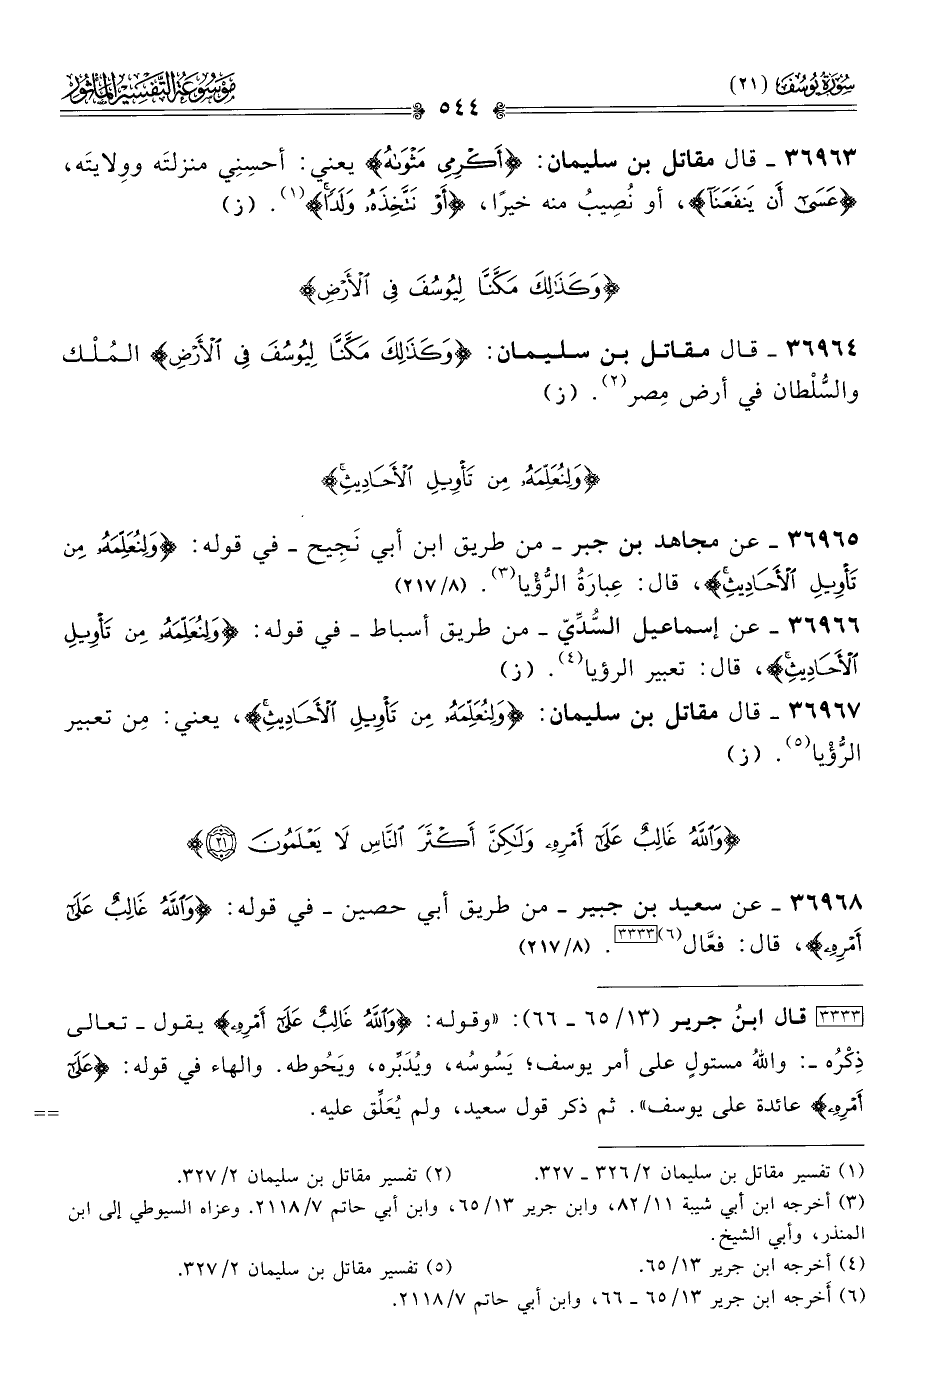 سُورَةُ يُوسُفَ (٢١)
٥٤٤
مَوْسُوعَةُ التَّفْسِيرِ المَأْثُورِ
٣٦٩٦٣ ـ قال مقاتل بن سليمان: ﴿أَكْرِمِى مَثْوَىٰهُ﴾ يعني: أحسِنِي منزلتَه وولايتَه،
﴿عَسَىٰٓ أَن يَنفَعَنَآ﴾، أو نُصِيبُ منه خيرًا، ﴿أَوْ نَتَّخِذَهُۥ وَلَدًاۚ﴾(١). (ز)
﴿وَكَذَٰلِكَ مَكَّنَّا لِيُوسُفَ فِى ٱلْأَرْضِ﴾
٣٦٩٦٤ ـ قال مقاتل بن سليمان: ﴿وَكَذَٰلِكَ مَكَّنَّا لِيُوسُفَ فِى ٱلْأَرْضِ﴾ المُلْك
والسُّلْطان في أرض مِصر(٢). (ز)
﴿وَلِنُعَلِّمَهُۥ مِن تَأْوِيلِ ٱلْأَحَادِيثِۚ﴾
٣٦٩٦٥ ـ عن مجاهد بن جبر ـ من طريق ابن أبي نَجِيح ـ في قوله: ﴿وَلِنُعَلِّمَهُۥ مِن
تَأْوِيلِ ٱلْأَحَادِيثِۚ﴾، قال: عِبارَةُ الرُّؤْيا(٣). (٨/ ٢١٧)
٣٦٩٦٦ ـ عن إسماعيل السُّدِّيّ ـ من طريق أسباط ـ في قوله: ﴿وَلِنُعَلِّمَهُۥ مِن تَأْوِيلِ
ٱلْأَحَادِيثِۚ﴾، قال: تعبير الرؤيا(٤). (ز)
٣٦٩٦٧ ـ قال مقاتل بن سليمان: ﴿وَلِنُعَلِّمَهُۥ مِن تَأْوِيلِ ٱلْأَحَادِيثِۚ﴾، يعني: مِن تعبير
الرُّؤْيا(٥). (ز)
﴿وَٱللَّهُ غَالِبٌ عَلَىٰٓ أَمْرِهِۦ وَلَٰكِنَّ أَكْثَرَ ٱلنَّاسِ لَا يَعْلَمُونَ ٢١﴾
٣٦٩٦٨ ـ عن سعيد بن جبير ـ من طريق أبي حصين ـ في قوله: ﴿وَٱللَّهُ غَالِبٌ عَلَىٰٓ
أَمْرِهِۦ﴾، قال: فعَّال(٦)[٣٣٣٣]. (٨/ ٢١٧)
[٣٣٣٣] قال ابنُ جرير (١٣/ ٦٥ ـ ٦٦): «وقوله: ﴿وَٱللَّهُ غَالِبٌ عَلَىٰٓ أَمْرِهِۦ﴾ يقول ـ تعالى
ذِكْرُه ـ: واللهُ مستولٍ على أمر يوسف؛ يَسُوسُه، ويُدَبِّره، ويَحُوطه. والهاء في قوله: ﴿عَلَىٰٓ
أَمْرِهِۦ﴾ عائدة على يوسف». ثم ذكر قول سعيد، ولم يُعَلِّق عليه. ==
(١) تفسير مقاتل بن سليمان ٢/ ٣٢٦ ـ ٣٢٧. (٢) تفسير مقاتل بن سليمان ٢/ ٣٢٧.
(٣) أخرجه ابن أبي شيبة ١١/ ٨٢، وابن جرير ١٣/ ٦٥، وابن أبي حاتم ٧/ ٢١١٨. وعزاه السيوطي إلى ابن
المنذر، وأبي الشيخ.
(٤) أخرجه ابن جرير ١٣/ ٦٥. (٥) تفسير مقاتل بن سليمان ٢/ ٣٢٧.
(٦) أخرجه ابن جرير ١٣/ ٦٥ ـ ٦٦، وابن أبي حاتم ٧/ ٢١١٨.